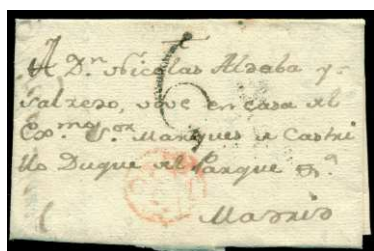 A D.n Nicolas Aldaba y
Salzedo, vive en casa del
Exo.mo S.or Marques de Castri
llo Duque del Parque
Madrid
6